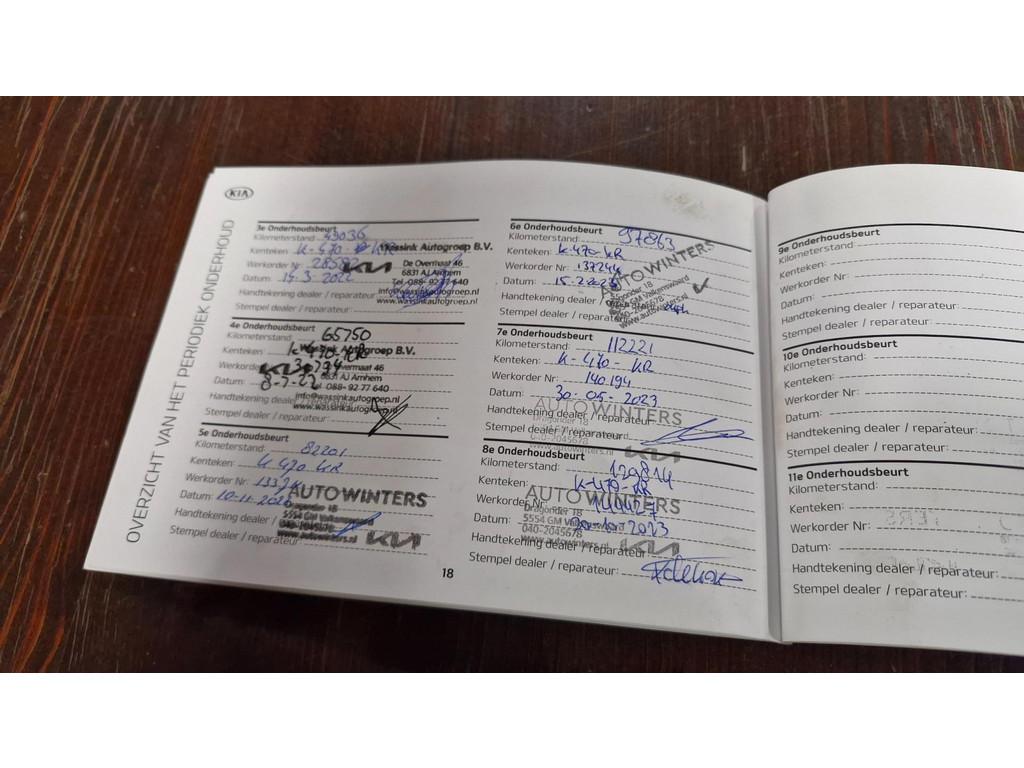 KIA
OVERZICHT VAN HET PERIODIEK ONDERHOUD
3e Onderhoudsbeurt
Kilometerstand: 49036
Kenteken: K-470-KR
Wassink Autogroep B.V.
Werkorder Nr: 28592
De Overmaat 46
6831 AJ Arnhem
Datum: 15-3-2022
Tel. 088-92 77 640
info@wassinkautogroep.nl
Handtekening dealer / reparateur:
www.wassinkautogroep.nl
Stempel dealer / reparateur:
4e Onderhoudsbeurt
Kilometerstand 65750
Kenteken: K-470-KR
Wassink Autogroep B.V.
Werkorder 30794
Overmaat 46
6831 AJ Arnhem
Datum: 8-7-22
Tel. 088-92 77 640
info@wassinkautogroep.nl
Handtekening dealer
www.wassinkautogroep.nl
Stempel dealer / reparateur:
5e Onderhoudsbeurt
Kilometerstand: 82201
Kenteken: K 470 KR
Werkorder Nr:
AUTO WINTERS
Datum: 10-11-
Dragonder 18
5554 GM Valkenswaard
Handtekening dealer /
040-2045678
www.autowinters.nl
Stempel dealer / reparateur:
KIA
18
6e Onderhoudsbeurt
Kilometerstand: 97863
Kenteken: K-470-KR
Werkorder Nr: 137244
AUTO WINTERS
Datum: 15-2-
Dragonder 18
5554 GM Valkenswaard
Handtekening dealer /
040-2045678
www.autowinters.nl
Stempel dealer / reparateur:
7e Onderhoudsbeurt
Kilometerstand: 112221
Kenteken: K-470-KR
Werkorder Nr: 140194
Datum: 30-05-2023
AUTO WINTERS
Handtekening dealer / reparateur
Dragonder 18
Stempel dealer / reparateur:
040-2045678
www.autowinters.nl
KIA
8e Onderhoudsbeurt
Kilometerstand: 129814
Kenteken: K-470-KR
AUTO WINTERS
Werkorder Nr
Dragonder 18
Datum: 20-10-2023
5554 GM Valkenswaard
040-2045678
Handtekening dealer / reparateur:
www.autowinters.nl
KIA
Stempel dealer / reparateur:
9e Onderhoudsbeurt
Kilometerstand:
Kenteken:
Werkorder Nr:
Datum:
Handtekening dealer / reparateur:
Stempel dealer / reparateur:
10e Onderhoudsbeurt
Kilometerstand:
Kenteken:
Werkorder Nr:
Datum:
Handtekening dealer / reparateur:
Stempel dealer / reparateur:
11e Onderhoudsbeurt
Kilometerstand:
Kenteken:
Werkorder Nr:
Datum:
Handtekening dealer / reparateur:
Stempel dealer / reparateur: